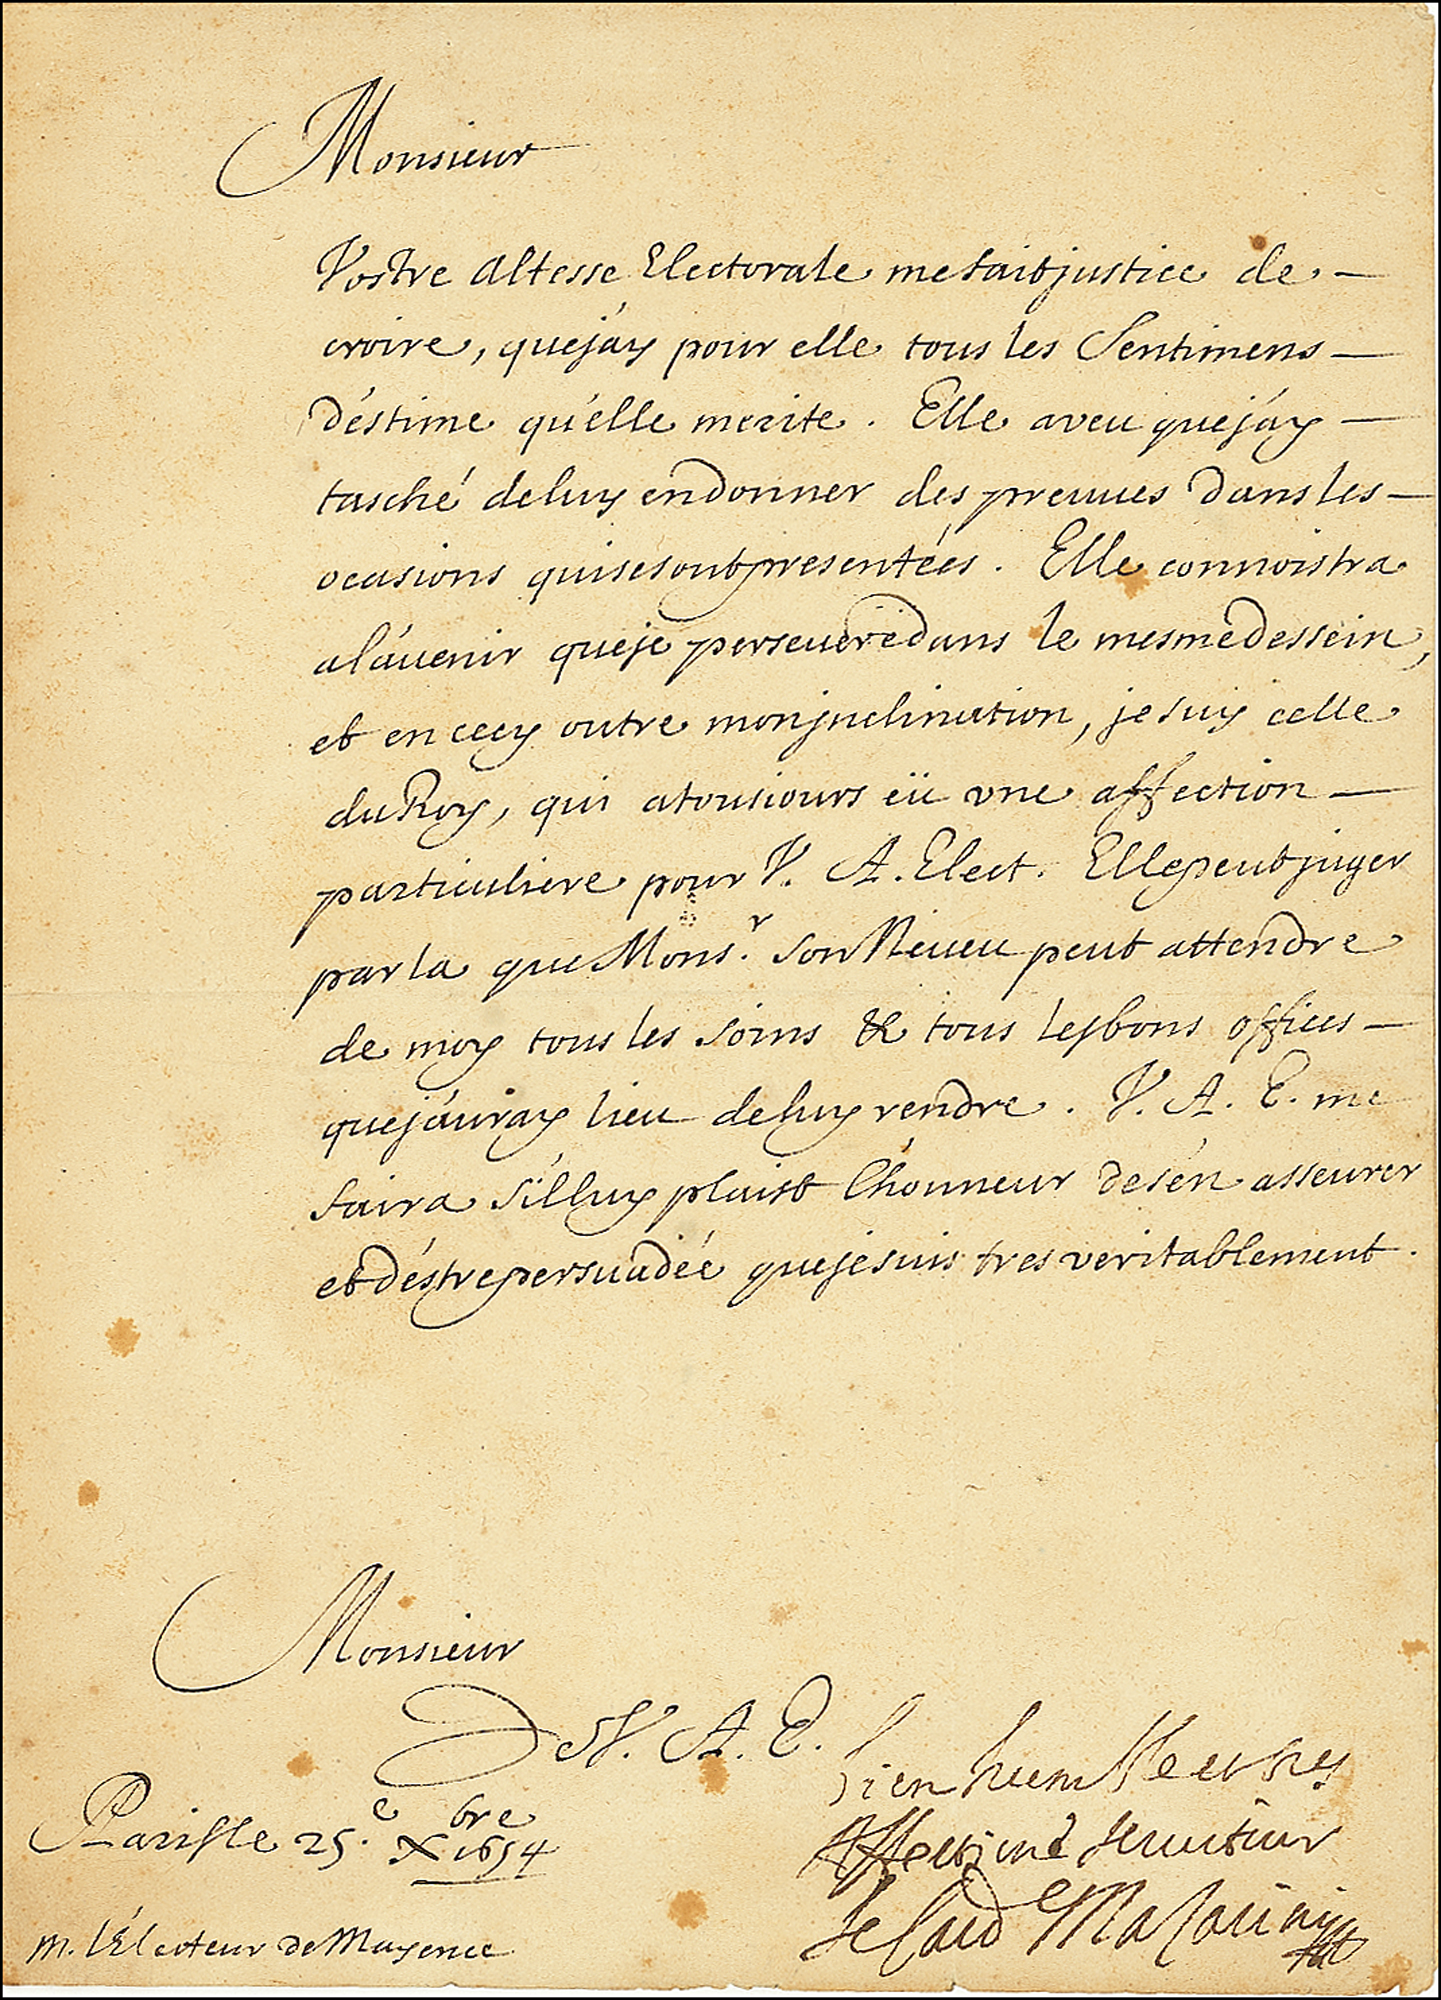 Monsieur
Vostre Altesse Electorale me fait justice de
croire, que j'ay pour elle tous les Sentimens
d'éstime qu'elle merite. Elle a veu que j'ay
tasché de luy en donner des preuues dans les
ocasions qui se sont presentées. Elle connoistra
a l'auenir que je perseuere dans le mesme dessein,
et en cecy outre mon jnclination, je suy celle
du Roy, qui a tousiours eü vne affection
particuliere pour V. A. Elect. Elle peut juger
par la que Mons.r son Neueu peut attendre
de moy tous les soins & tous les bons offices
que j'auray lieu de luy rendre. V. A. E. me
faira s'il luy plaist l'honneur de s'en asseurer
et d'éstre persuadée que je suis tres veritablement.
Monsieur
De V. A. E.
bien humble et tres
Affectioné seruiteur
le Card Mazarini
Paris le 25.e Xbre 1654
M. l'Électeur de Mayence